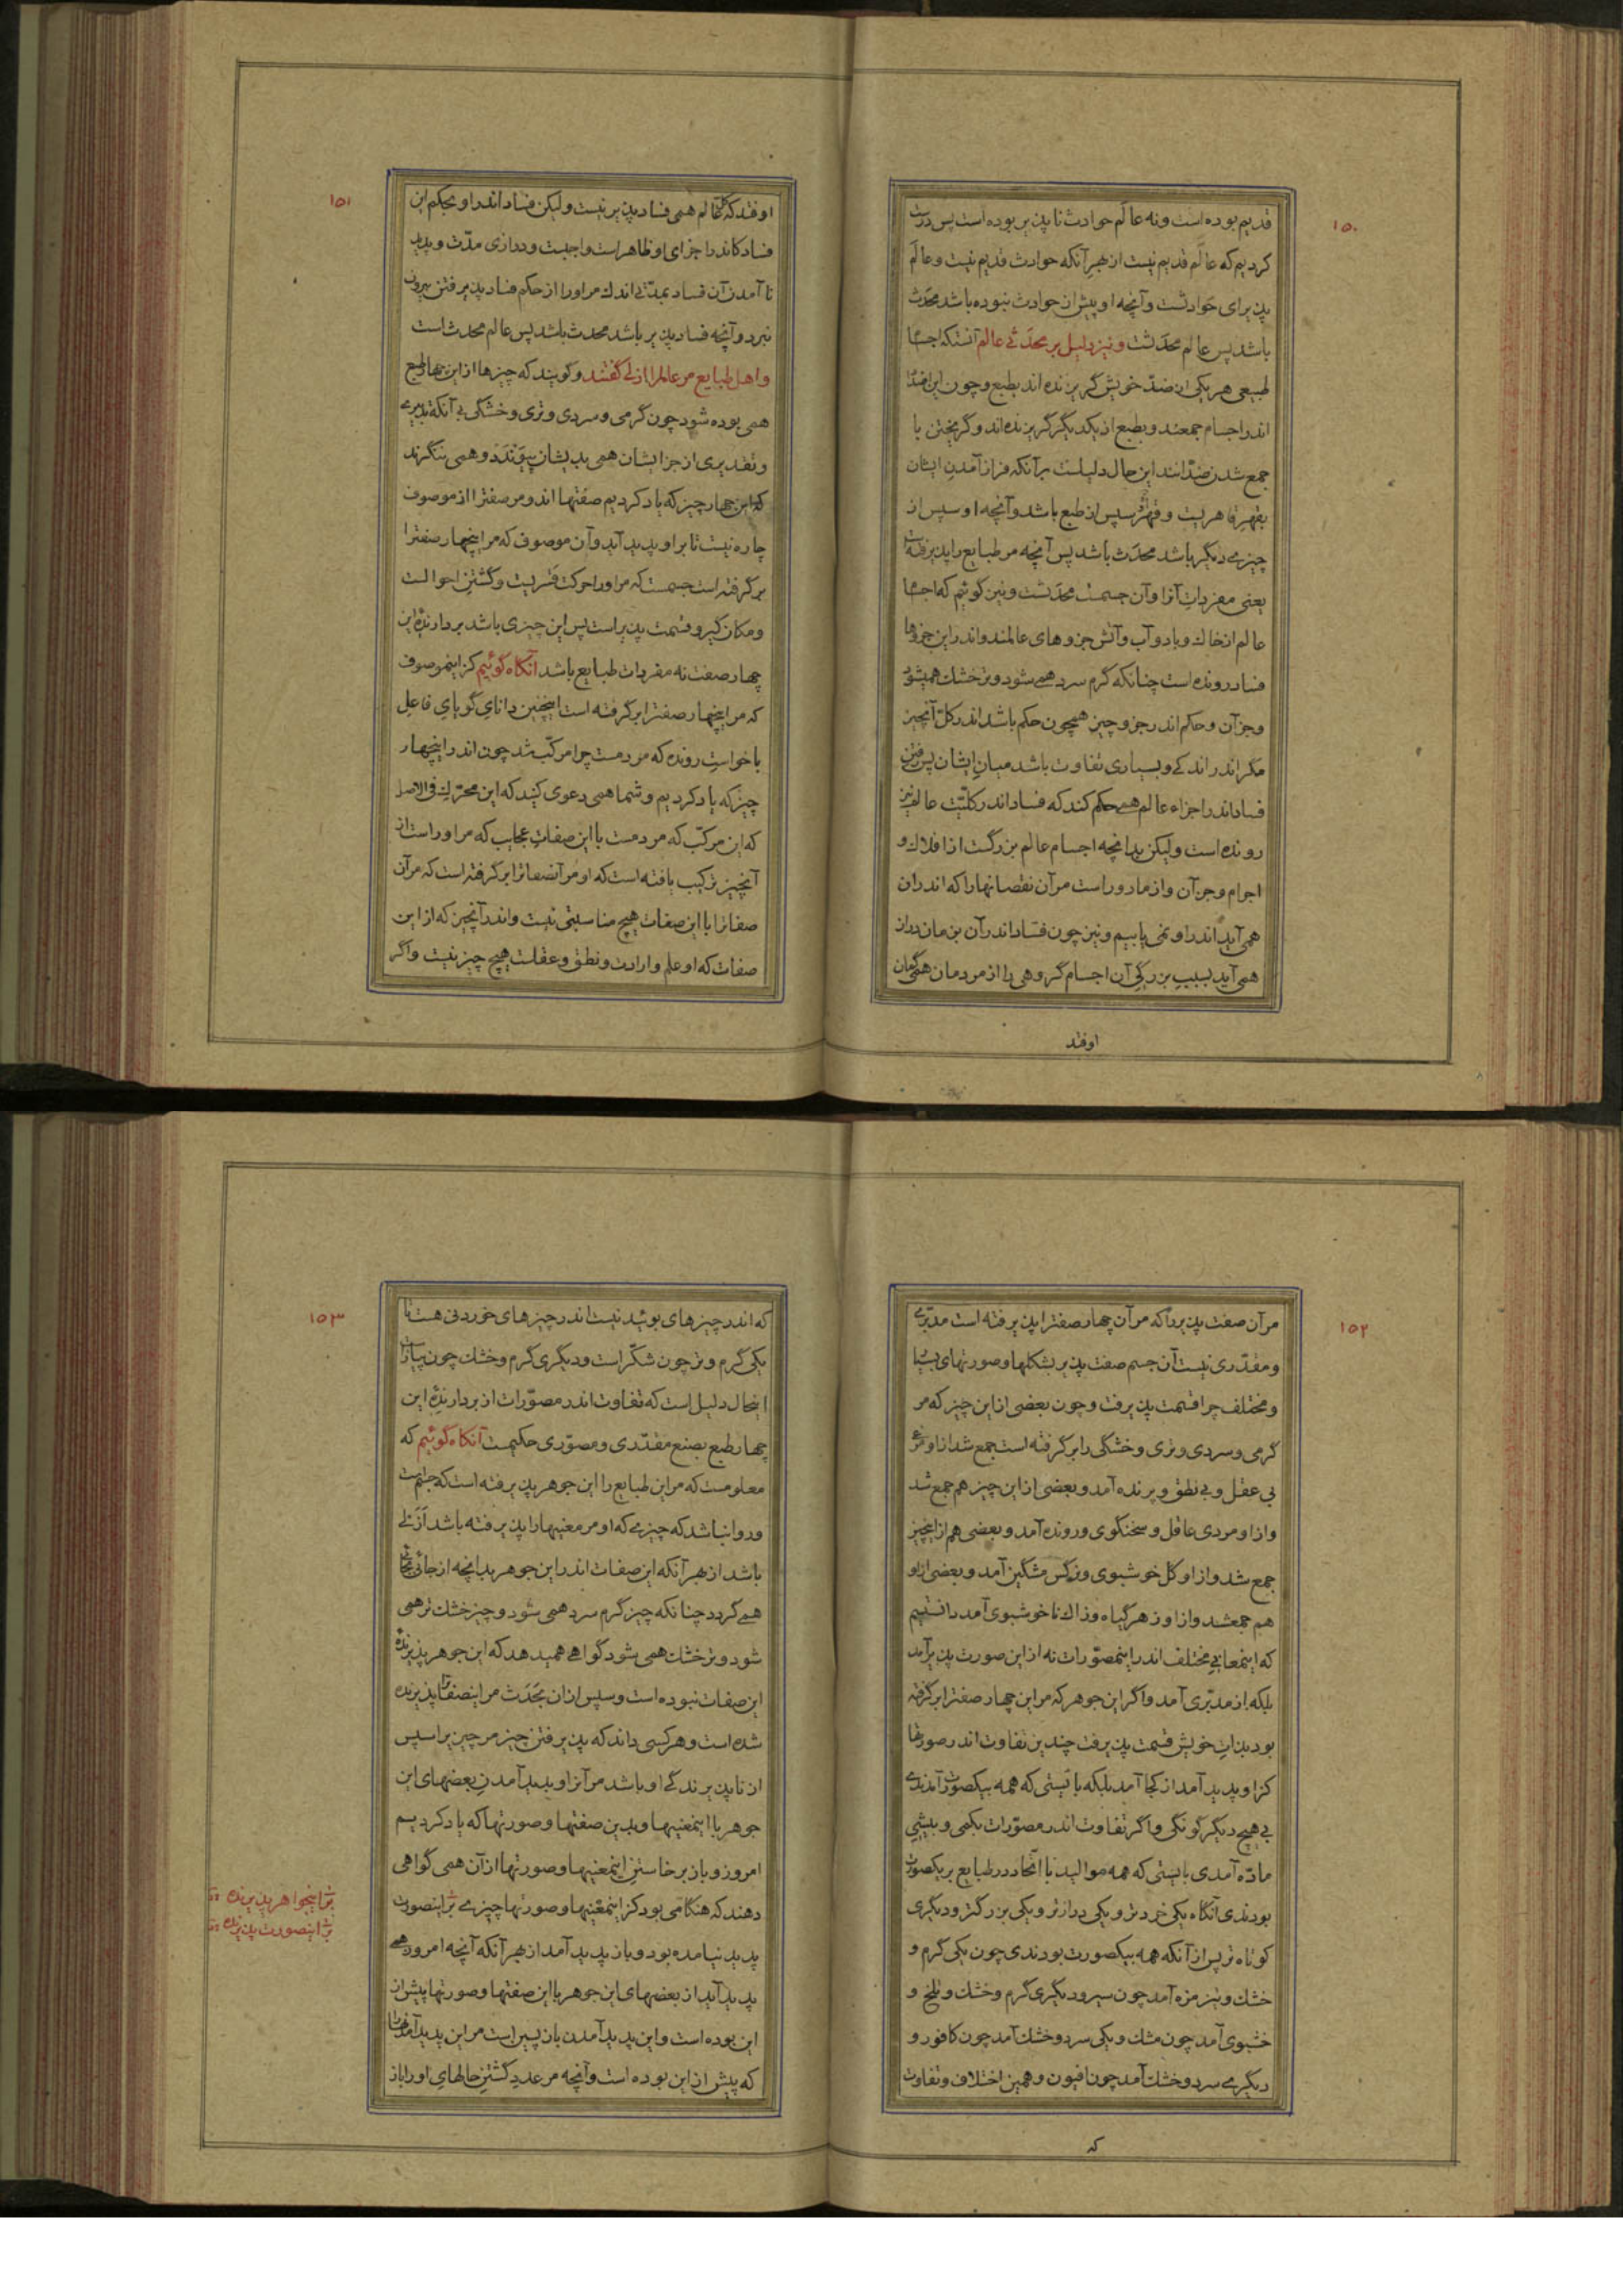 ۱۵۰
قدیم بوده است و نه عالم حوادث ناپذیر بوده است پس درست
کردیم که عالم قدیم نیست از بهر آنکه حوادث قدیم نیست و عالم
پذیرای حوادثست و آنچه او پیش از حوادث نبوده باشد محدث
باشد پس عالم محدثست و نیز دلیل بر محدثی عالم آنستکه اجسام
طبیعی هر یکی از ضدّ خویش گریزنده اند بطبع و چون این اضداد
اندر اجسام جمعند و بطبع از یکدیگر گریزنده اند و گریختن با
جمع شدن ضدّانند این حال دلیلست بر آنکه فراز آمدن ایشان
بقهر قاهریست و قهر سپس از طبع باشد و آنچه او سپس از
چیزی دیگر باشد محدَث باشد پس آنچه مر طبایع را پذیرفته است
یعنی مفردات آنرا و آن جسمست محدثست و نیز گوئیم که اجسام
عالم از خاك و باد و آب و آتش جزوهای عالمند و اندر این جزوها
فساد رونده است چنانکه گرم سرد همی شود و تر خشك همیشود
و جز آن و حکم اندر جزو چیز همچون حکم باشد اندر کلّ آنچیز
مگر اندر اندکی و بسیاری تفاوت باشد میان ایشان پس رفتن
فساد اندر اجزاء عالم همی حکم کند که فساد اندر کلّیّت عالم نیز
رونده است ولیکن بدانچه اجسام عالم بزرگست از افلاك و
اجرام و جز آن و از ما دور است مر آن نقصانها را که اندر ان
همی آید اندر او نمی یابیم و نیز چون فساد اندر آن بزمان دراز
همی آید بسبب بزرگی آن اجسام گروهی را از مردمان همی گمان
اوفتد
۱۵۱
اوفتد که عالم همی فساد پذیر نیست ولیکن فساد اندر او بحکم این
فساد کاندر اجزای او ظاهر است واجبست و درازی مدّت و پدید
نا آمدن آن فساد بمدّتی اندك مر او را از حکم فساد پذیرفتن بیرون
نبرد و آنچه فساد پذیر باشد محدث باشد پس عالم محدث است
و اهل طبایع مر عالمرا ازلی گفتند و گویند که چیزها از این چهار طبع
همی بوده شود چون گرمی و سردی و تری و خشکی بی آنکه تدبیری
و تقدیری از جز ایشان همی بدیشان پیوندد و همی ننگرند
که این چهار چیز که یاد کردیم صفتها اند و مر صفترا از موصوف
چاره نیست تا بر او پدید آید و آن موصوف که مر اینچهار صفترا
بر گرفته است جسمست که مر او را حرکت قسریست و گشتن احوالست
و مکان گیر و قسمت پذیر است پس این چیزی باشد بردارندهٔ این
چهار صفت نه مفردات طبایع باشد آنگاه گوئیم کز اینموصوف
که مر اینچهار صفترا بر گرفته است اینچنین دانای گویای فاعل
با خواست رونده که مردمست چرا مرکّب شد چون اندر اینچهار
چیز که یاد کردیم و شما همی دعوی کنید که این محرّك فی الاصل
که این مرکّب که مردمست با این صفات عجایب که مر او راست از
آنچیز ترکیب یافته است که او مر آنصفاترا بر گرفته است که مر آن
صفاترا با این صفات هیچ مناسبتی نیست و اندر آنچیز که از این
صفات که او علم و ارادت و نطق و عقلست هیچ چیز نیست و اگر
۱۵۲
مر آن صفت پذیر را که مر آن چهار صفترا پذیرفته است مدبّری
و مقدّری نیست آن جسم صفت پذیر بشکلها و صورتهای بسیار
و مختلف چرا قسمت پذیرفت و چون بعضی از این چیز که مر
گرمی و سردی و تری و خشکی را بر گرفته است جمع شد از او مرغی
بی عقل و بی نطق و پرنده آمد و بعضی از این چیز هم جمع شد
و از او مردی عاقل و سخنگوی و رونده آمد و بعضی هم از اینچیز
جمع شد و از او گل خوشبوی و نرگس مشگین آمد و بعضی از او
هم جمعشد و از او زهر گیاه و زاك ناخوشبوی آمد دانستیم
که اینمعانی مختلف اندر اینمصوّرات نه از این صورت پذیر آمد
بلکه از مدبّری آمد و اگر این جوهر که مر این چهار صفترا بر گرفته
بود بذات خویش قسمت پذیرفت چندین تفاوت اندر صورتها
کز او پدید آمد از کجا آمد بلکه بایستی که همه بیکصورت آمدندی
بی هیچ دیگر گونگی و اگر تفاوت اندر مصوّرات بکمی و بیشی
مادّه آمدی بایستی که همه موالید با اتّحاد در طبایع بر یکصورت
بودندی آنگاه یکی خردتر و یکی درازتر و یکی بزرگتر و دیگری
کوتاه تر پس از آنکه همه بیکصورت بودندی چون یکی گرم و
خشك و تیز مزه آمد چون سیر و دیگری گرم و خشك و تلخ و
خشبوی آمد چون مشك و یکی سرد و خشك آمد چون کافور و
دیگری سرد و خشك آمد چون افیون و همین اختلاف و تفاوت
که
۱۵۳
که اندر چیزهای بوئید نیست اندر چیزهای خوردنی هست تا
یکی گرم و تر چون شکّر است و دیگری گرم و خشك چون پیاز
اینحال دلیل است که تفاوت اندر مصوّرات از بردارندهٔ این
چهار طبع بصنع مقدّری و مصوّری حکیمست آنگاه گوئیم که
معلومست که مر این طبایع را این جوهر پذیرفته است که جسمست
و روا نباشد که چیزی که او مر معنیها را پذیرفته باشد ازلی
باشد از بهر آنکه این صفات اندر این جوهر بدانچه از حالی بحالی
همی گردد چنانکه چیز گرم سرد همی شود و چیز خشك تر همی
شود و تر خشك همی شود گواهی همیدهد که این جوهر پذیرندهٔ
این صفات نبوده است و سپس از ان بحدَث مر اینصفاترا پذیرنده
شده است و هر کسی داند که پذیرفتن چیز مر چیز را سپس
از ناپذیرندگی او باشد مر آنرا و پدید آمدن بعضهای این
جوهر با اینمعنیها و بدین صفتها و صورتها که یاد کردیم
امروز و باز برخاستن اینمعنیها و صورتها از آن همی گواهی
دهند که هنگامی بود کز اینمعنیها و صورتها چیزی بر اینصورت
پدید نیامده بود و باز پدید آمد از بهر آنکه آنچه امروز همی
پدید آید از بعضهای این جوهر با این صفتها و صورتها پیش از
این بوده است و این پدید آمدن باز پسین است مر این پدید آمدنها
که پیش از این بوده است و آنچه مر عدد گشتن حالهای او را باز
بر اینجواهر پذیرنده
بر اینصورت پذیرنده